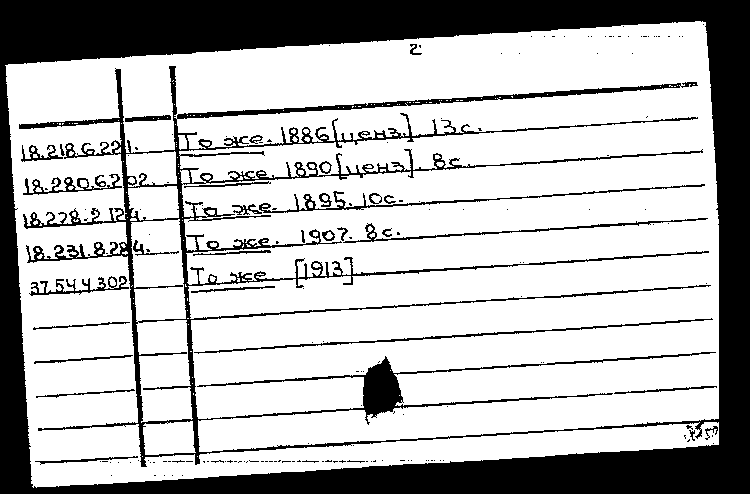 2
18.218.6.221. То же. 1886 [ценз.] 13 с.
18.280.6.202. То же. 1890 [ценз.] 8 с.
18.278.2.124. То же. 1895. 10 с.
18.231.8.284. То же. 1907. 8 с.
37.54.4.302 То же. [1913]